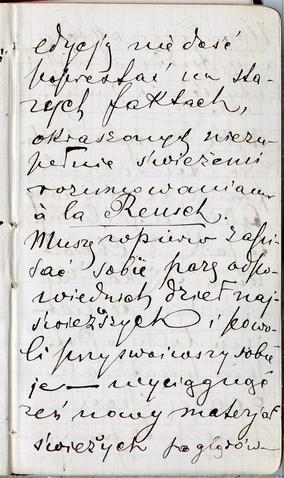 edycją nie dość
poprestać na sta-
rych faktach,
okraszonych niezu-
pełnie świeżemi
rozumowaniami
à la Reusch.
Muszę wpierw zapi-
sać sobie parę odpo-
wiednich dzieł naj-
świeższych i powo-
li przyswoiwszy sobie
je — wyciągnąć
zeń nowy materjał
świeżych poglądów